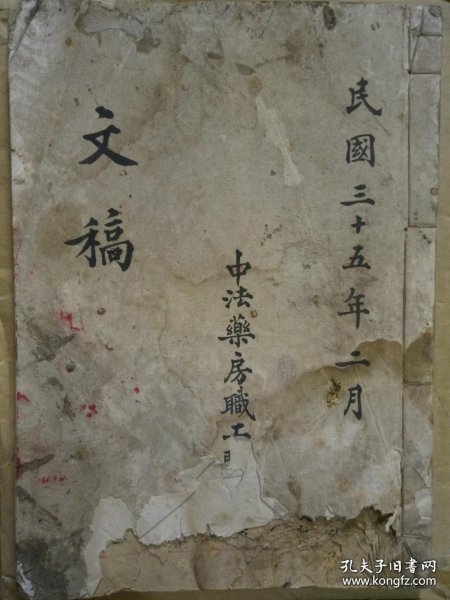 民國三十五年二月
中法藥房職工
文稿
孔夫子旧书网
www.kongfz.com